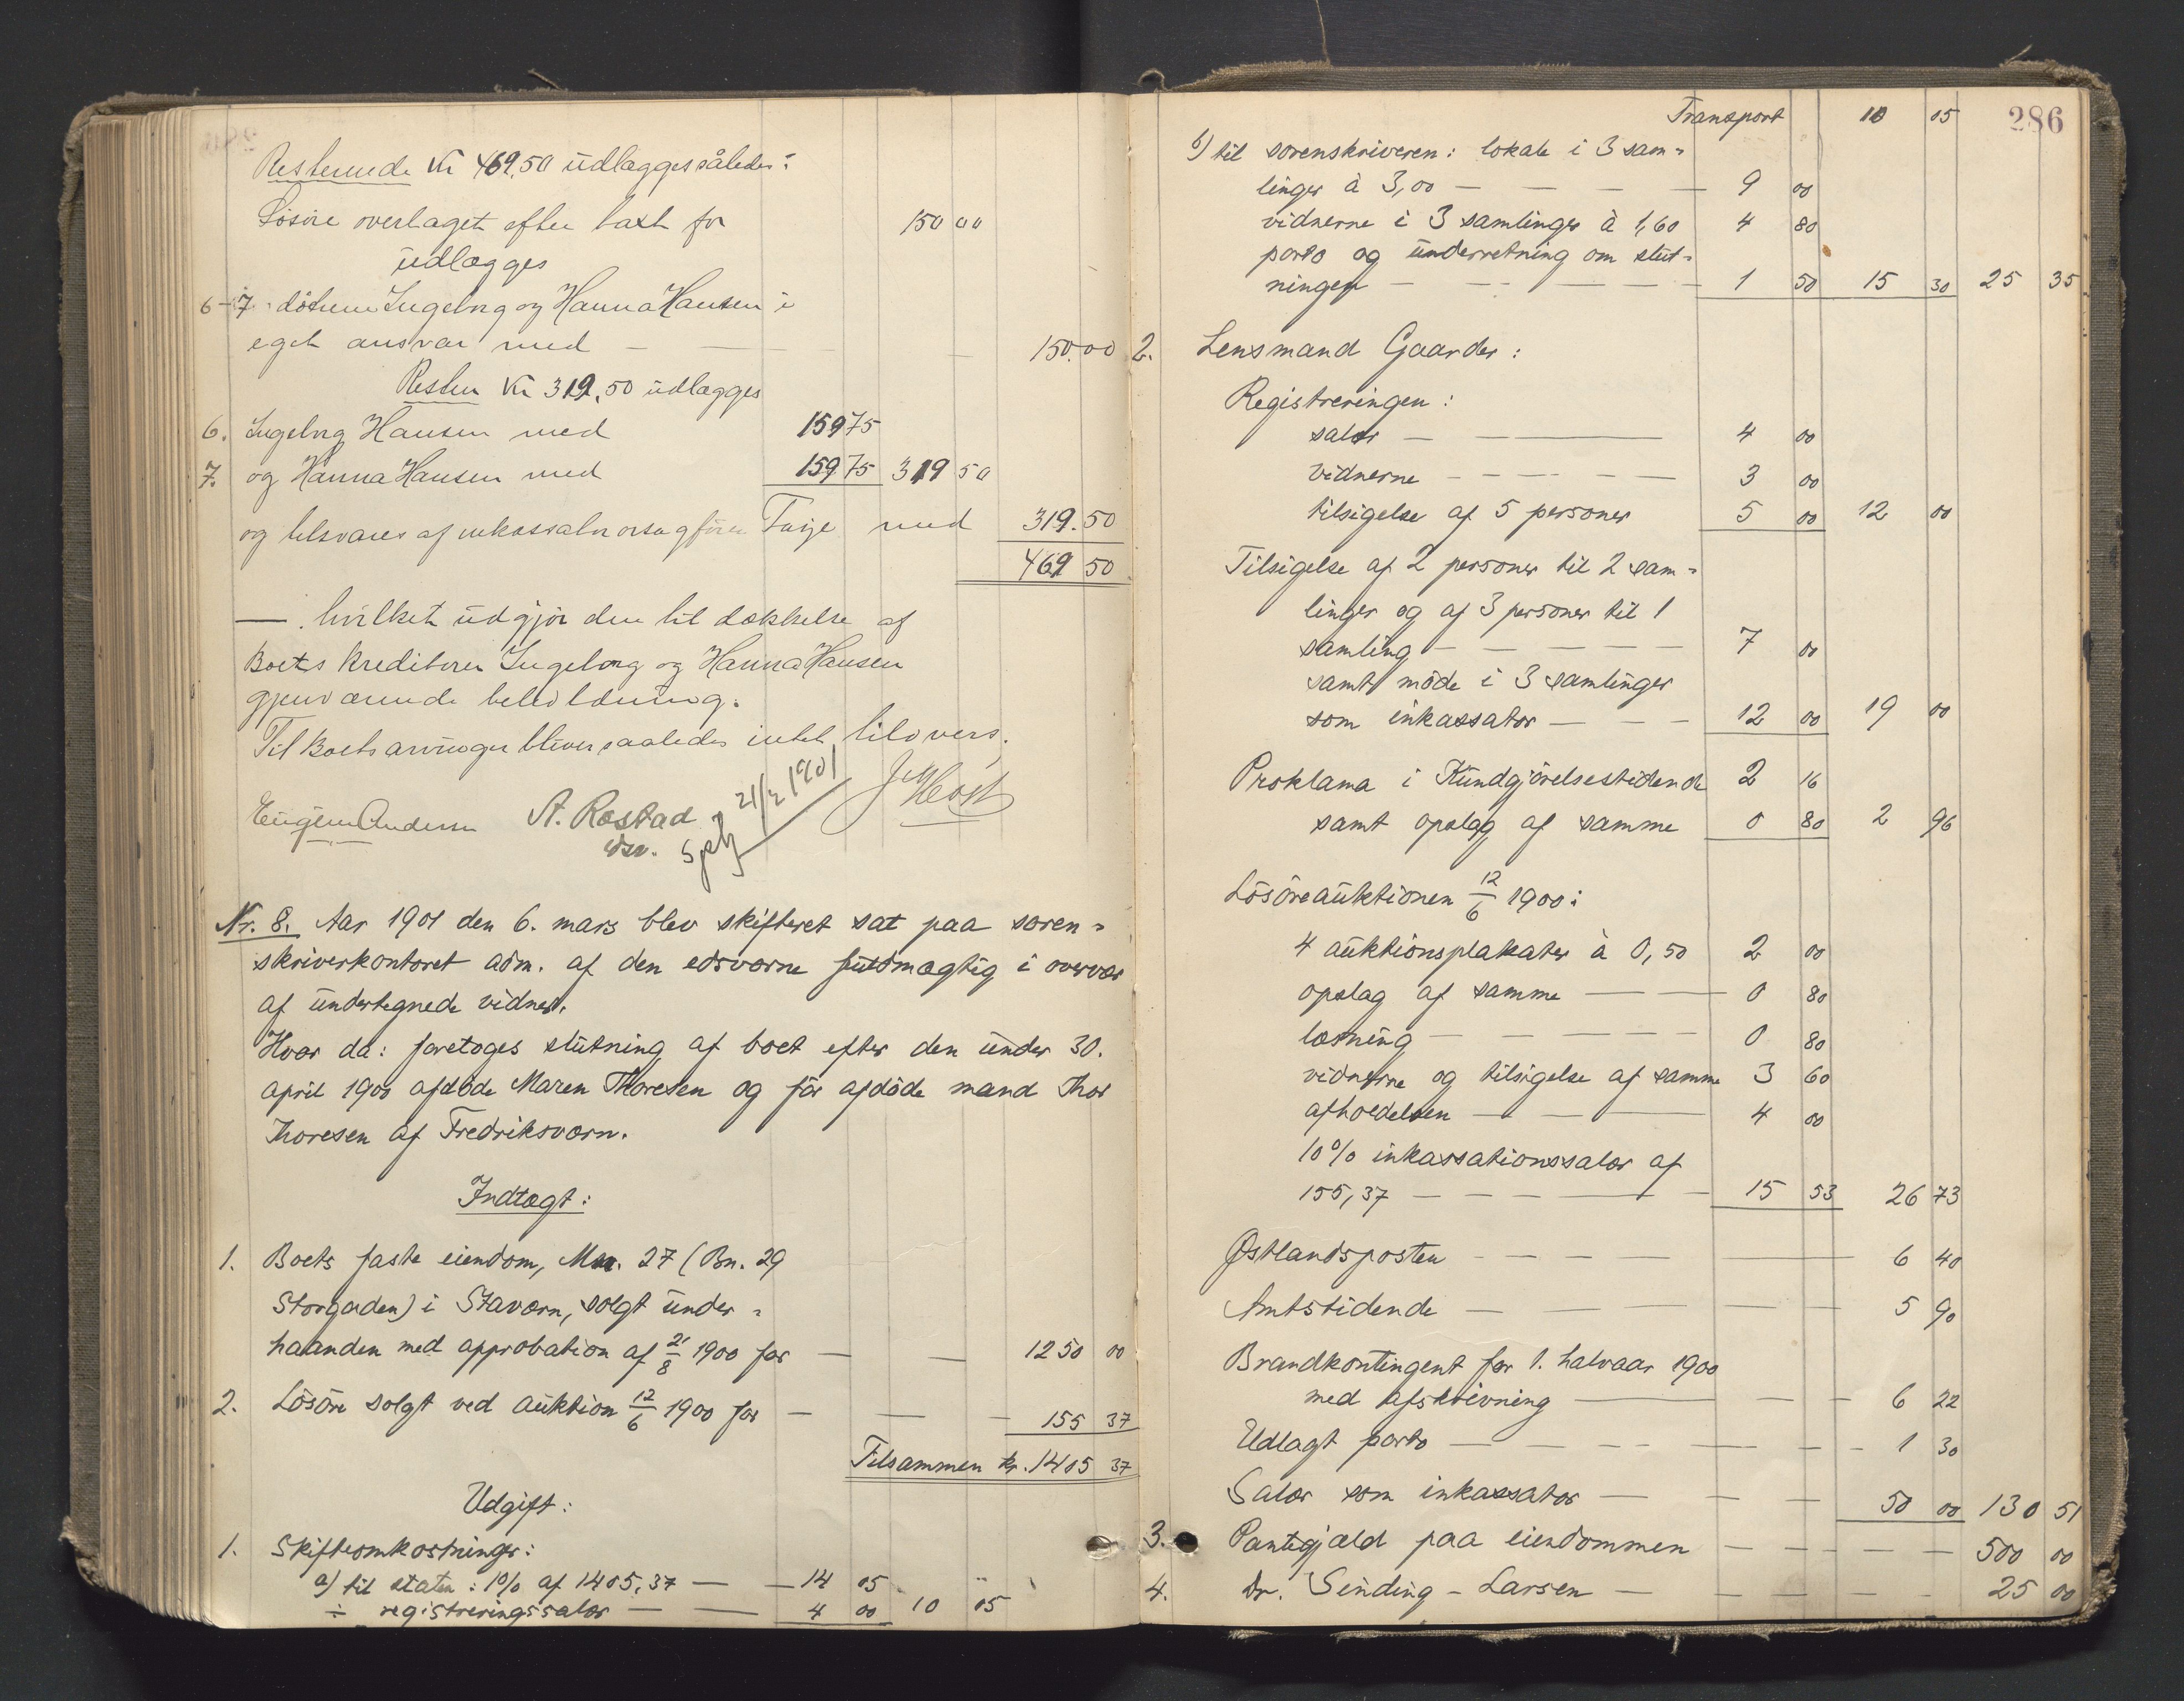 Resterende Kr 469.50 udlægges således:
Løsøre overtaget efter taxt for 150 00
udlægges
6-7 døtrene Ingeborg og Hanna Hansen i
eget ansvar med — — — 150.00
Resten Kr 319,50 udlægges
6. Ingeborg Hansen med 159 75
7. og Hanna Hansen med 159.75 319 50
og tilsvares af inkassator med 319.50
469 50
— hvilket udgjør den til dækkelse af
Boets Kreditorer Ingeborg og Hanna Hansen
gjenværende beholdning.
Til Boets arvinger bliver saaledes intet tilovers.
Eugen Andersen A. Rostad 21/2 1901 J M Høst
Nr. 8. Aar 1901 den 6. mars blev skifteret sat paa soren-
skriverkontoret adm. af den edsvorne fuldmægtig i overvær
af undertegnede vidner.
Hvor da: foretoges slutning af boet efter den under 30.
april 1900 afdøde Maren Thoresen og før afdøde mand Thor
Thoresen af Fredriksværn.
Indtægt:
1. Boets faste eiendom, Mnr. 27 (Bn. 29
Storgaden) i Staværn, solgt under-
haanden med approbation af 21/8 1900 for — — 1250 00
2. Løsøre solgt ved auktion 12/6 1900 for — — — 155 37
Tilsammen kr. 1405 37
Udgift:
1. Skifteomkostninger:
a) til staten: 1% af 1405,37 — — 14 05
÷ registreringssalær — — 4 00 10 05
286
Transport 10 05
b) til sorenskriveren: lokale i 3 sam-
linger à 3,00 — — — — 9 00
vidnerne i 3 samlinger à 1,60 4 80
porto og underretning om slut-
ningen — — — — 1 50 15 30 25 35
2. Lensmand Gaarder:
Registreringen:
salær — — — 4 00
vidnerne — — — — 3 00
tilsigelse af 5 personer 5 00 12 00
Tilsigelse af 2 personer til 2 sam-
linger og af 3 personer til 1
samling — — — — — 7 00
samt møde i 3 samlinger
som inkassator — — — 12 00 19 00
Proklama i Kundgjørelsestidende 2 16
samt opslag af samme 0 80 2 96
Løsøreauktionen 12/6 1900:
4 auktionsplakater à 0,50 2 00
opslag af samme — — 0 80
læsning — — — — — 0 80
vidnerne og tilsigelse af samme 3 60
afholdelsen — — — 4 00
10% inkassationssalær af
155,37 — — — — — 15 53 26 73
Østlandsposten — — — — — 6 40
Amtstidende — — — — — 5 90
Brandkontingent for 1. halvaar 1900
med afskrivning — — — 6 22
Udlagt porto — — — — — — 1 30
Salær som inkassator — — — 50 00 130 51
3. Pantegjæld paa eiendommen — — — — — 500 00
4. Dr. Sinding-Larsen — — — — — 25 00